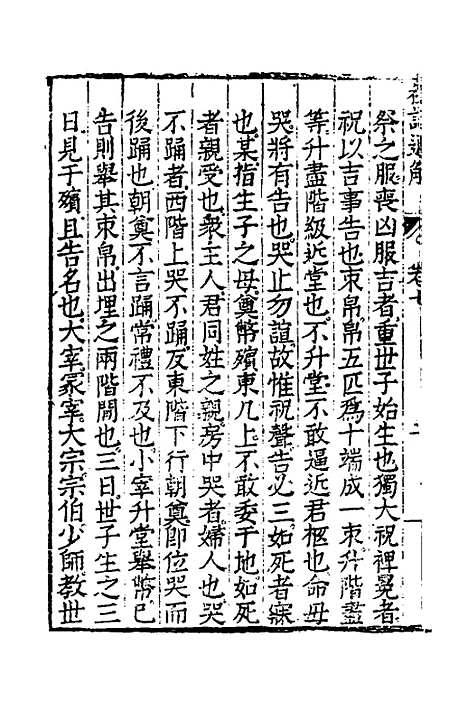 禮記通解
卷七
二
祭之服喪凶服吉者重世子始生也獨大祝裨冕者
祝以吉事告也束帛帛五匹爲十端成一束升階盡
等升盡階級近堂也不升堂不敢逼近君柩也命毋
哭將有告也哭止勿諠故惟祝聲告必三如死者寐
也某指生子之母奠幣殯東几上不敢委于地如死
者親受也衆主人君同姓之親房中哭者婦人也哭
不踊者西階上哭不踊反東階下行朝奠卽位哭而
後踊也朝奠不言踊常禮不及也小宰升堂舉幣已
告則舉其束帛出埋之兩階間也三日世子生之三
日見于殯且告名也大宰冢宰大宗宗伯少師教世